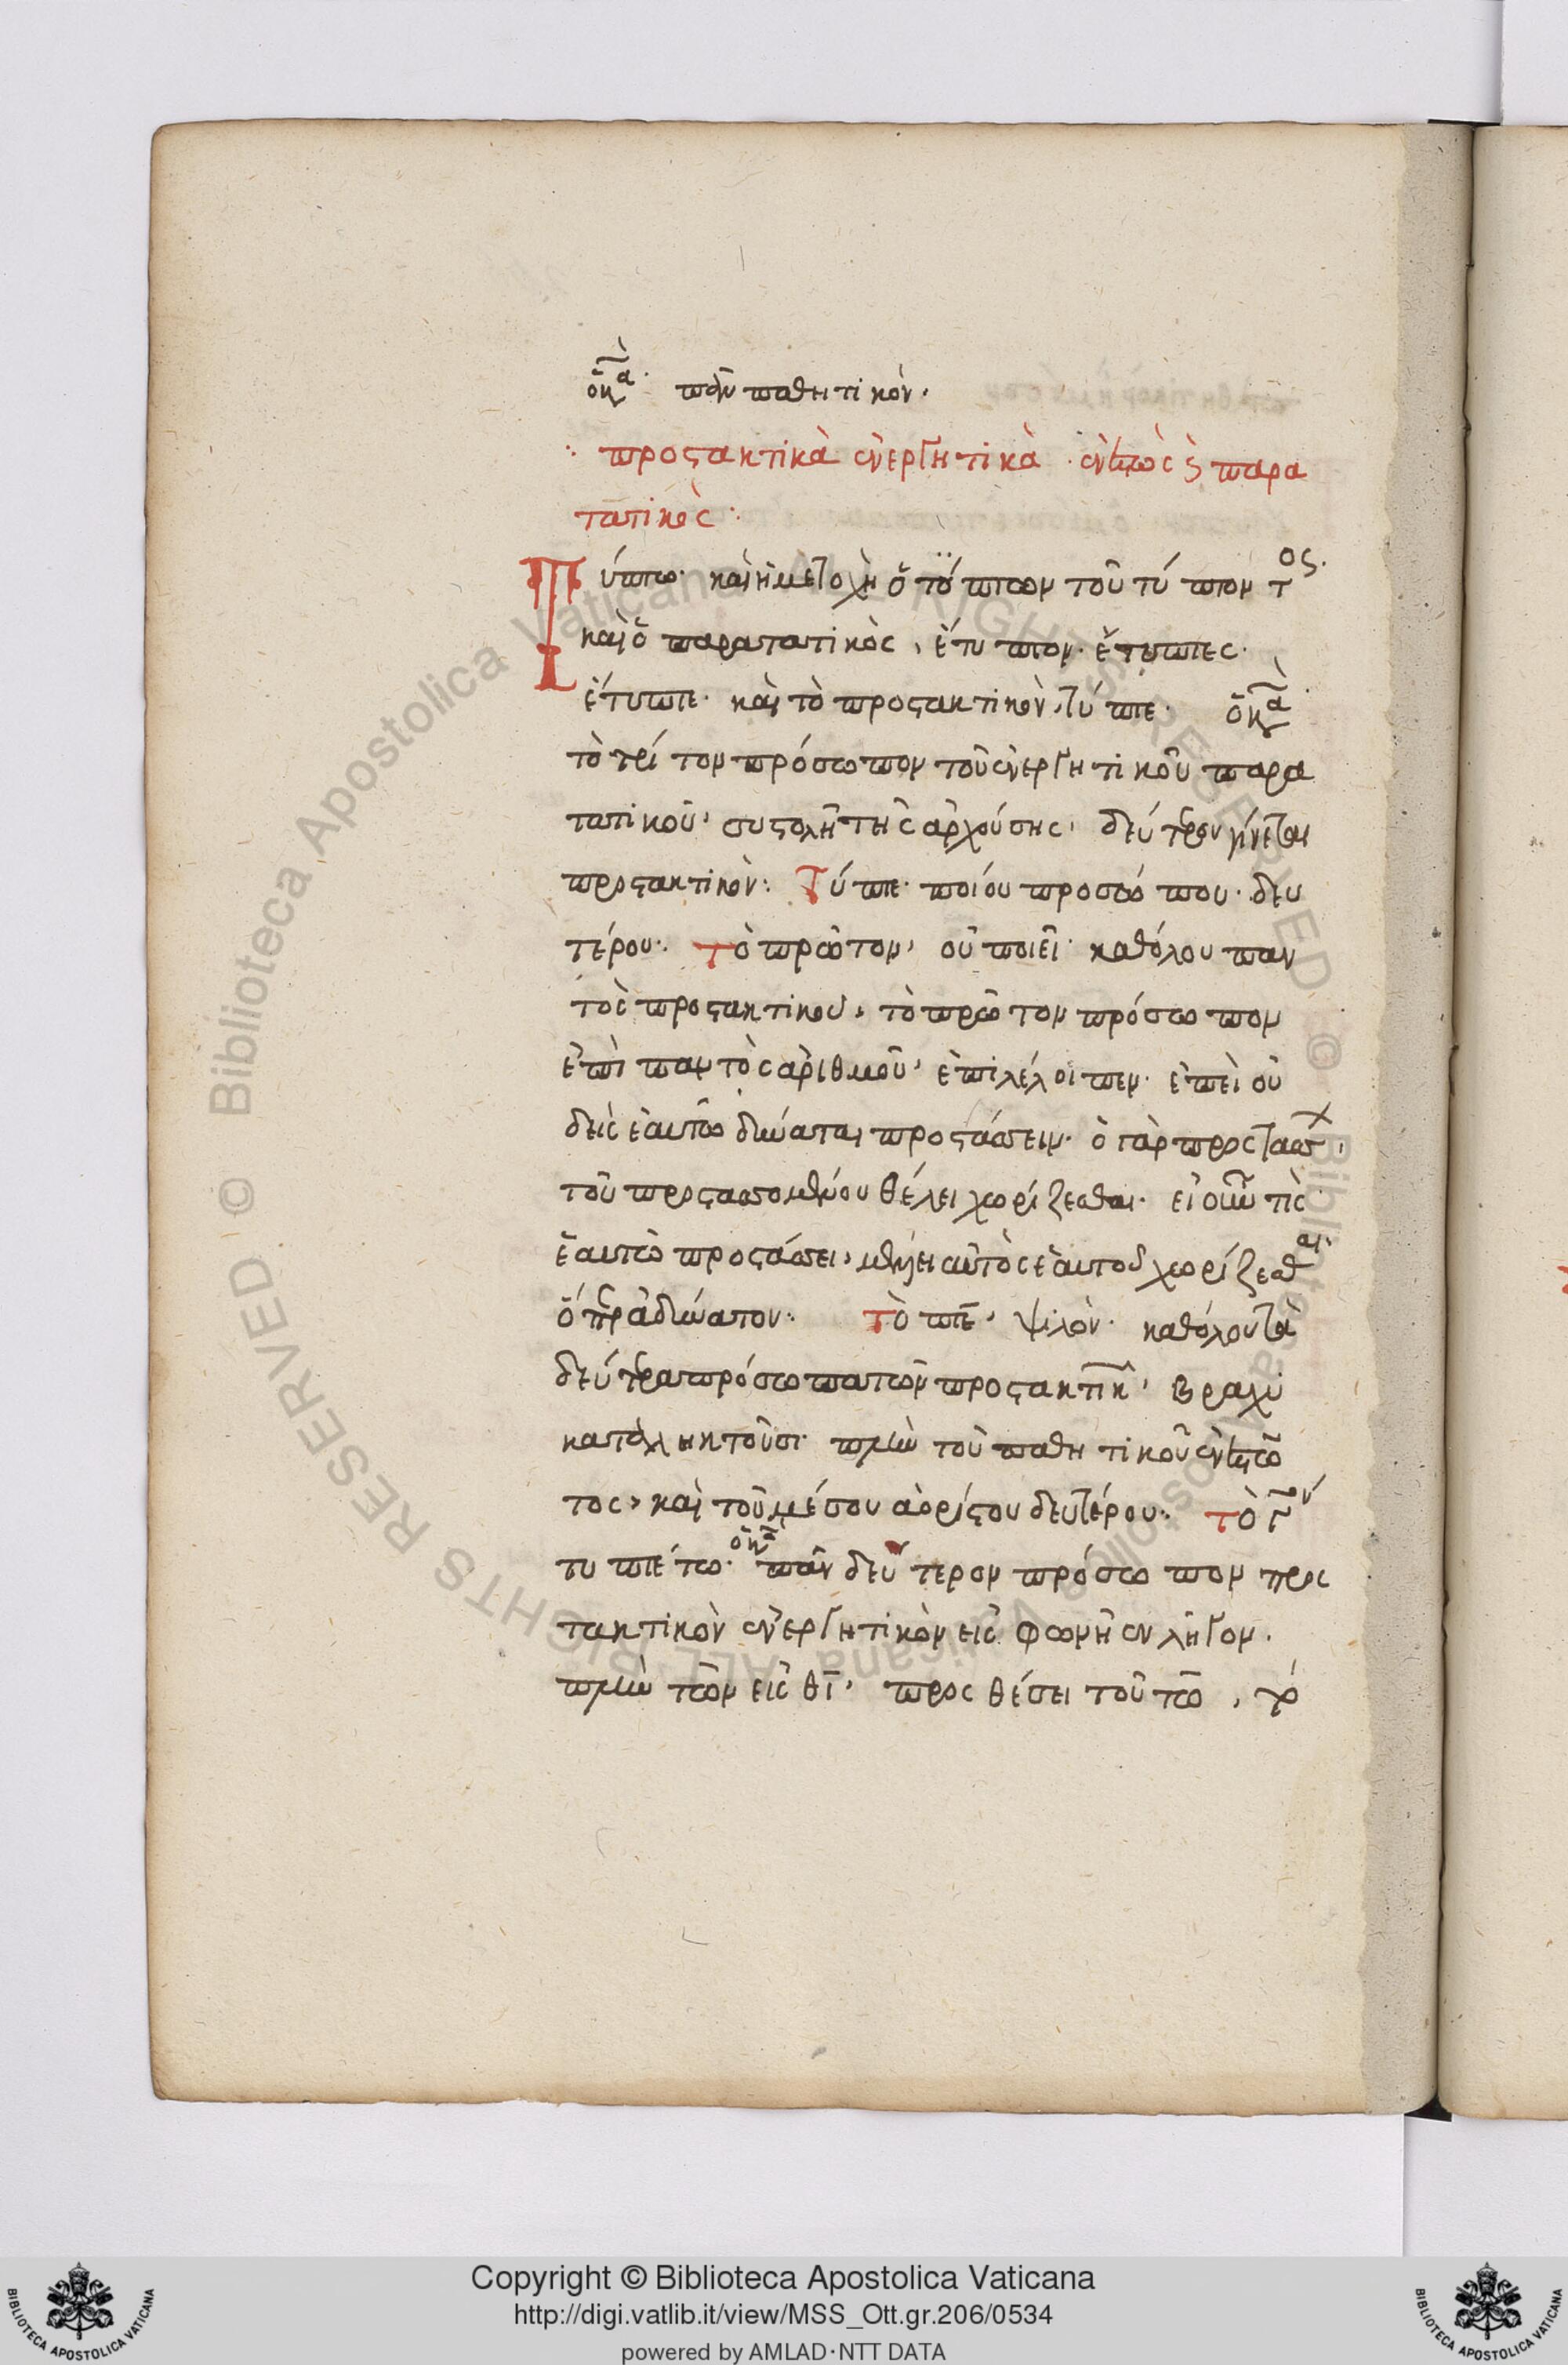 ὁ κα πᾶν παθητικόν.
προστακτικὰ ἐνεργητικὰ. ἐνεστὼς ϛ παρα
τατικὸς:
Τύπτω. καὶ ἡ μετοχὴ ὁ τύπτων τοῦ τύπτοντος.
καὶ ὁ παρατατικὸς, ἔτυπτον. ἔτυπτες.
ἔτυπτε. καὶ τὸ προστακτικὸν, τύπτε. ὁ κα
τὸ τρίτον πρόσωπον τοῦ ἐνεργητικοῦ παρα
τατικοῦ, συστολῇ τῆς ἀρχούσης, δεύτερον γίνεται
προστακτικόν: Τύπτε. ποίου προσώπου. δευ
τέρου. τὸ πρῶτον, οὐ ποιεῖ. καθόλου παν
τὸς προστακτικοῦ, τὸ πρῶτον πρόσωπον
ἐπὶ παντὸς ἀριθμοῦ, ἐπιλέλοιπεν. ἐπεὶ οὐ
δεὶς ἑαυτῶ δύναται προστάσσειν. ὁ γὰρ προστάσσων,
τοῦ προστασσομένου θέλει χωρίζεσθαι. εἰ οὖν τὶς
ἑαυτῶ προστάσσει, μέλλει αὐτὸς ἑαυτοῦ χωρίζεσθαι.
ὅπερ ἀδύνατον. τὸ πτε, ψιλόν. καθόλου τὰ
δεύτερα πρόσωπα τῶν προστακτικῶν, βραχυ
καταληκτοῦσι. πλὴν τοῦ παθητικοῦ ἐνεστῶ
τος, καὶ τοῦ μέσου ἀορίστου δευτέρου. τὸ τρίτον
τυπτέτω. ὁ κα πᾶν δεύτερον πρόσωπον προσ
τακτικὸν ἐνεργητικὸν εἰς φωνῆεν λῆγον.
πλὴν τῶν εἰς θι, προσθέσει τοῦ τω,
Copyright © Biblioteca Apostolica Vaticana
http://digi.vatlib.it/view/MSS_Ott.gr.206/0534
powered by AMLAD·NTT DATA